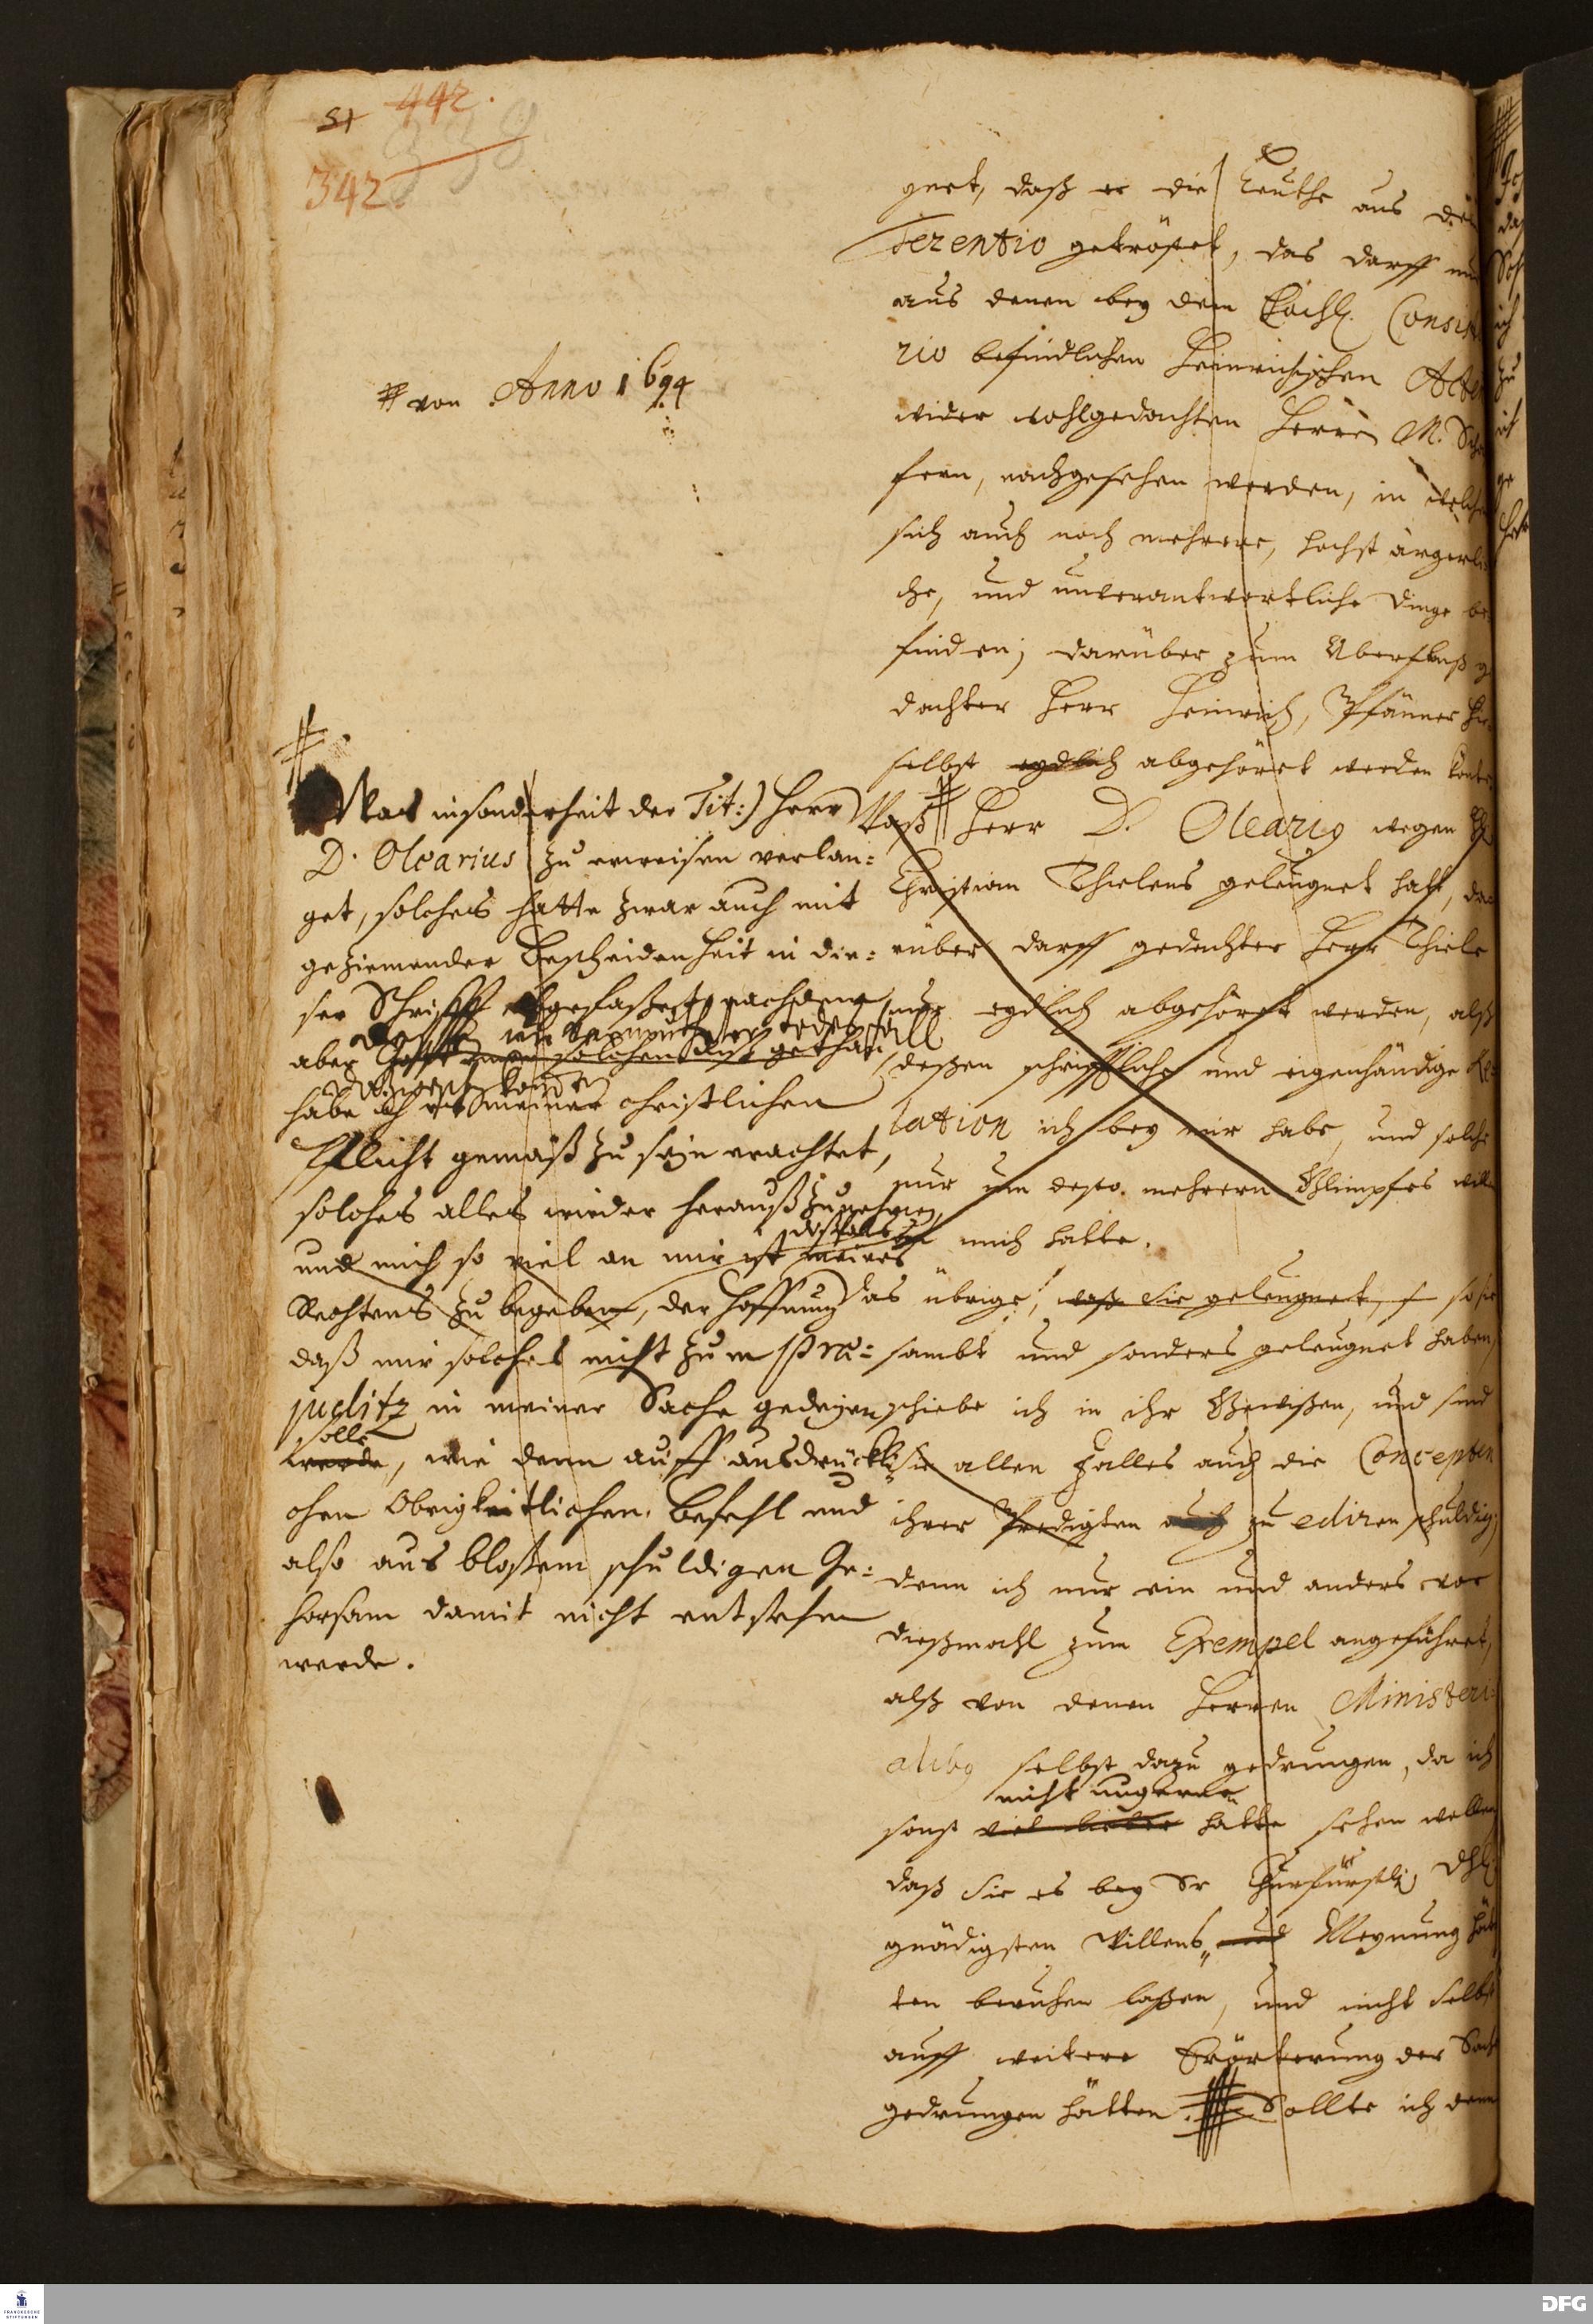 51 442.
342
# von Anno 1694
# Was insonderheit der Tit:) Herr
D. Olearius zu erweisen verlan-
get, solches hatte zwar auch mit
geziemender Bescheidenheit in die-
ser Schrifft abgefaßet, nachdem
aber solchen
habe ich es meiner christlichen
Pflicht gemäß zu sein erachtet,
solches alles wieder heraußzunehmen,
und mich so viel an mir ist meines
Rechtens zu begeben, der Hoffnung
daß mir solches nicht zum præ-
juditz in meiner Sache gedeyen
solle
werde, wie denn auff ausdrückli-
chen Obrigkeitlichen Befehl und
also aus bloßem schuldigen Ge-
horsam damit nicht entstehen
werde.
gnet, daß er die Leuthe aus dem
Terentio getröstet, das darff nur
aus denen bey dem Löchl. Consisto
rio befindlichen Heinrichischen Acten
wider wohlgedachten Herrn M.
fern, nachgesehen werden, in welchen
sich auch noch mehrere, höchst ärgerli-
che, und unverantwortliche Dinge be-
finden; darüber zum Uberfluß ge
dachter Herr Heinrich, Pfänner hie-
selbst eydlich abgehöret werden könte.
Was # Herr D. Olearius wegen H.
Christian Thielens geleugnet hatt, da
rüber darff gedachter Herr Thiele
nur eydlich abgehöret werden, alß
deßen schrifftliche und eigenhändige Re-
lation ich bey mir habe, und solche
nur um desto mehrern Glimpfes willen
mich halte.
Das übrige, was sie geleugnet, so sie
sambt und sonders geleugnet haben,
schiebe ich in ihr Gewißen, und sind
sie allen Falles auch die Concepten
ihrer Predigten auch zu ediren schuldig,
denn ich nur ein und anders vor
dießmahl zum Exempel angeführet,
alß von denen Herren Ministeri-
alibus selbst dazu gedrungen, da ich
nicht ungerne
sonst viel lieber hätte sehen wollen
daß sie es bey Sr Churfürstl. Dhl.
gnädigsten Willens und Meynung hät
ten beruhen laßen, und nicht selbst
auff weitere Erörterung der Sache
gedrungen hätten. # Sollte ich denn
FRANCKESCHE
STIFTUNGEN
DFG